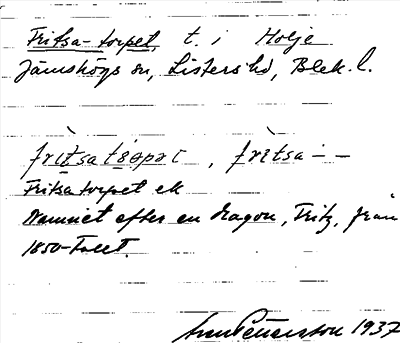 Fritsa-torpet, t. i Holje
Jämshögs sn, Listers hd, Blek. l.
frìtsatɵrpət, frìtsa--
Fritsatorpet ek
Namnet efter en dragon, Fritz, från
1850-talet.
Pettersson 1937